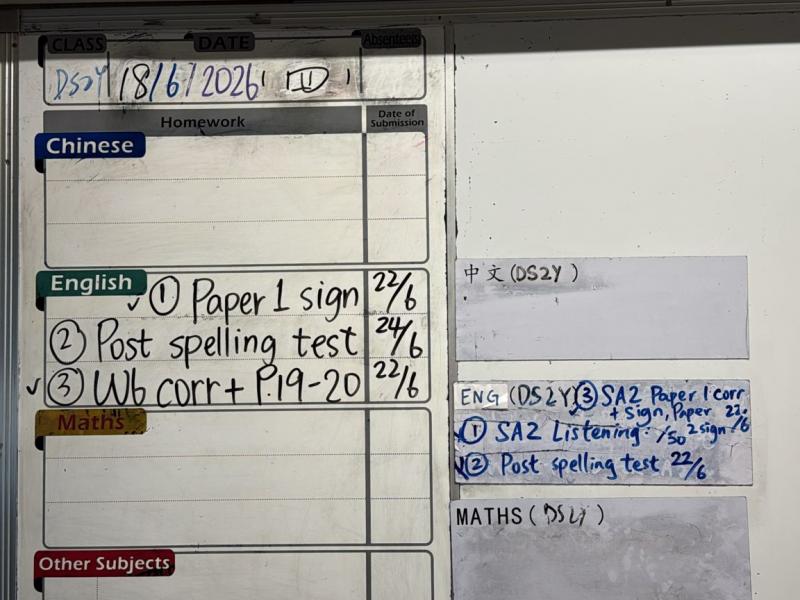 CLASS DATE Absentees
DS2Y 18/6/2026
Homework Date of Submission
Chinese
English
① Paper 1 sign 22/6
② Post spelling test 24/6
③ Wb corr + P.19-20 22/6
Maths
Other Subjects
中文(DS2Y)
ENG (DS2Y) ③ SA2 Paper 1 corr
+ sign, Paper 22/6
① SA2 Listening: /50 2 sign
② Post spelling test 22/6
MATHS (DS2Y)